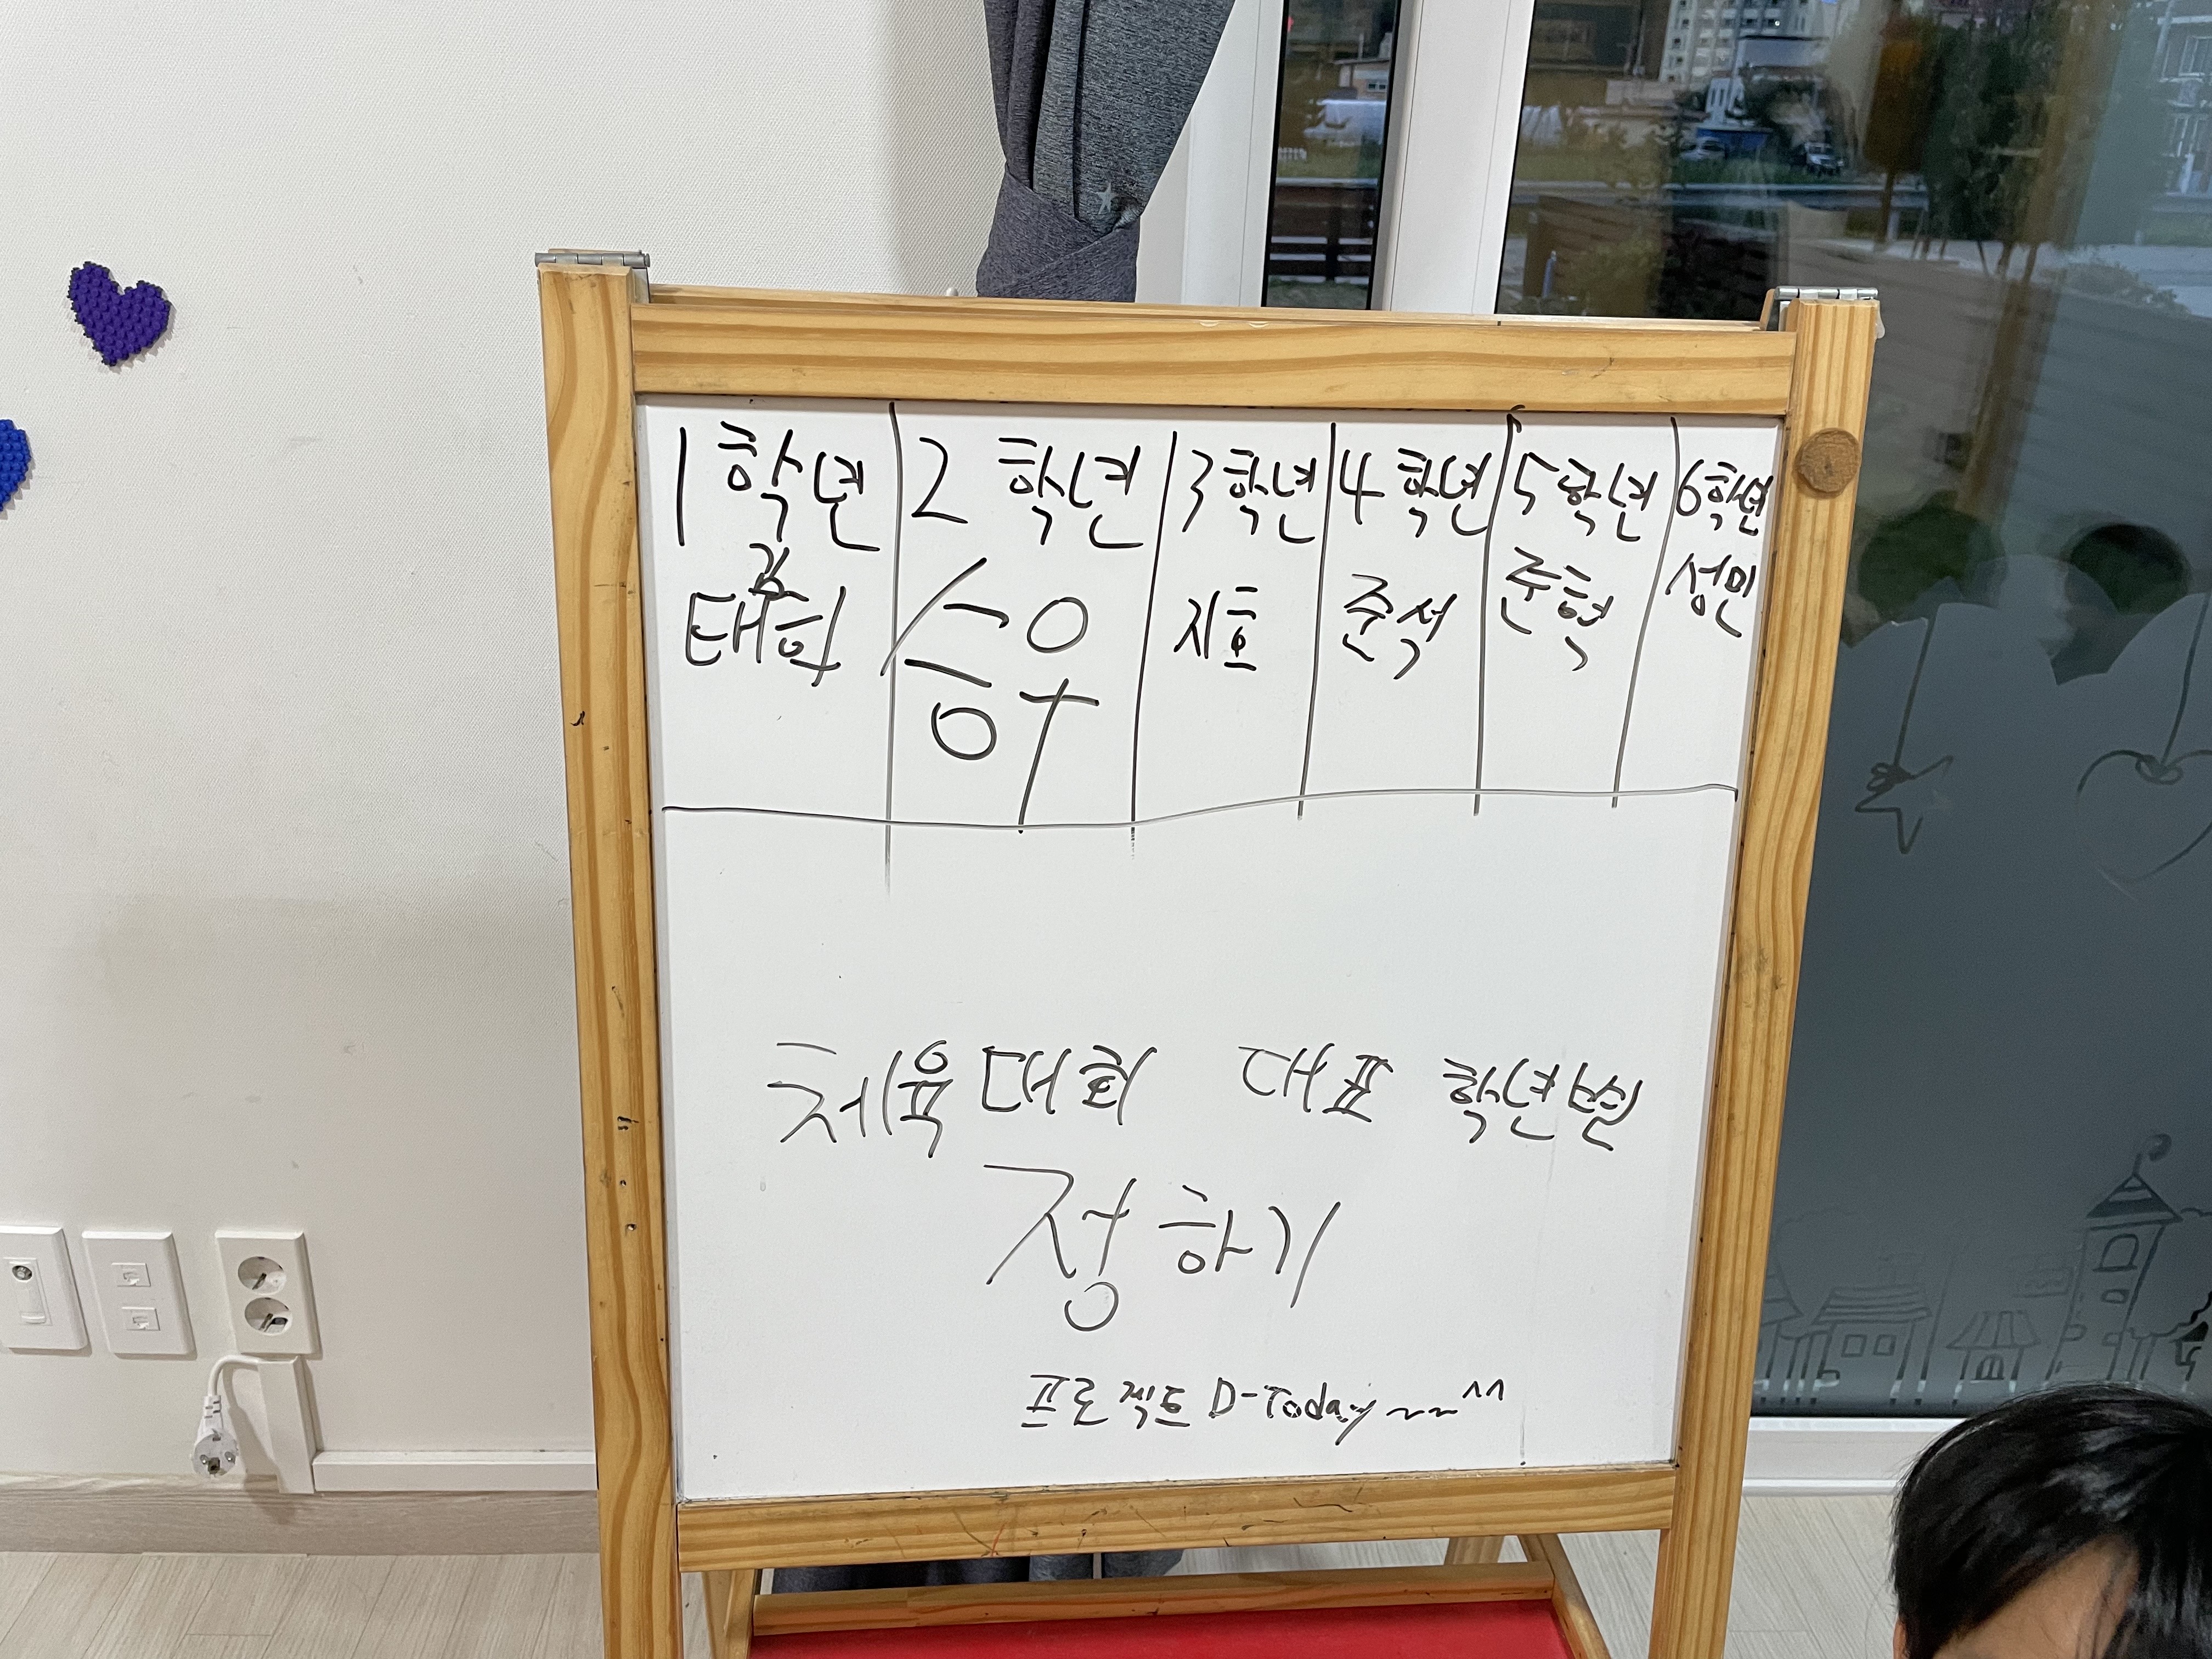 1학년 2학년 3학년 4학년 5학년 6학년
김
태희 승우 지호 준석 준혁 성민
체육대회 대표 학년별
정하기
프로젝트 D-Today ~~^^